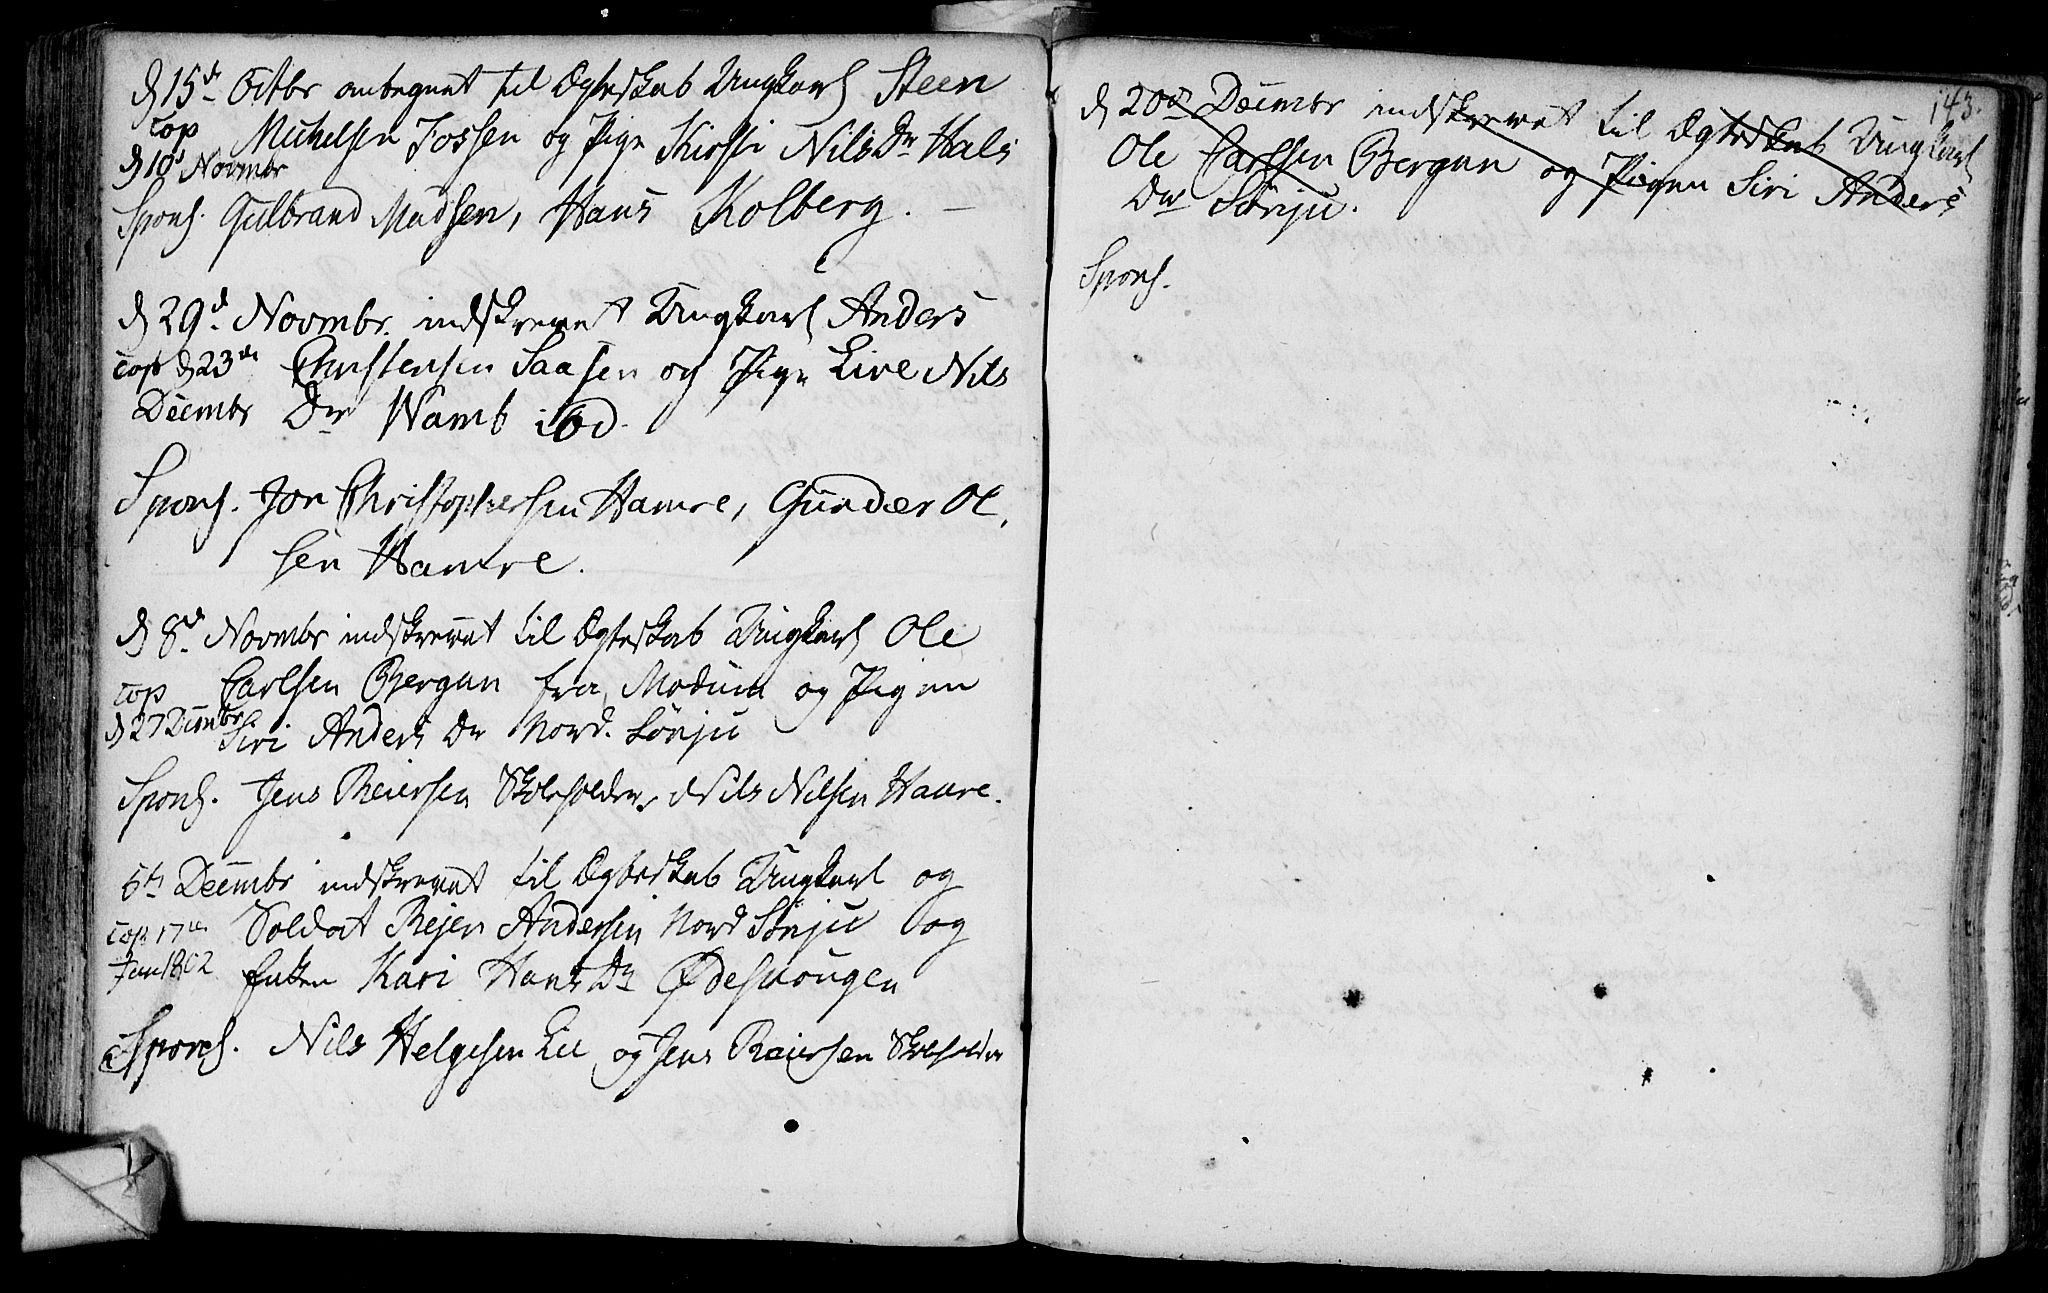 d 15de Octbr anbegnet til Ægteskab Ungkarl Steen
cop Michelsen Fossen og Pige Kirsti Nils Dr Hals
d 10d Novmbr
Spons. Gulbrand Madsen, Hans Kolberg. —
d 29d. Novmbr. indskrevet Ungkarl Anders
cop d 23de Christensen Saasen og Pige Live Nils
Decmbr Dr Wamb ibd.
Spons. Jon Christophersen Hamre, Gunder Ol,
sen Hamre.
d 8d. Novmbr indskrevet til Ægteskab Ungkarl Ole
cop Carlsen Bergan fra Modum og Pigen
d 27 Decmbr Siri Anders Dr Nord. Sønju
Spons. Jens Reiersen Skoleholder, Nils Nilsen Hamre.
6te Decmbr indskrevet til Ægteskab Ungkarl og
cop 17de Soldat Rejer Andersen Nord Sønju og
Jan 1802 Enken Kari Hans Dr Ødesprongen
Spons. Nils Helgesen Lie og Jens Reiersen Skoleholder
143.
d 20de Decmbr indskrevet til Ægteskab Ungkarl
Ole Carlsen Bergan og Pigen Siri Anders
Dr Sønju.
Spons.